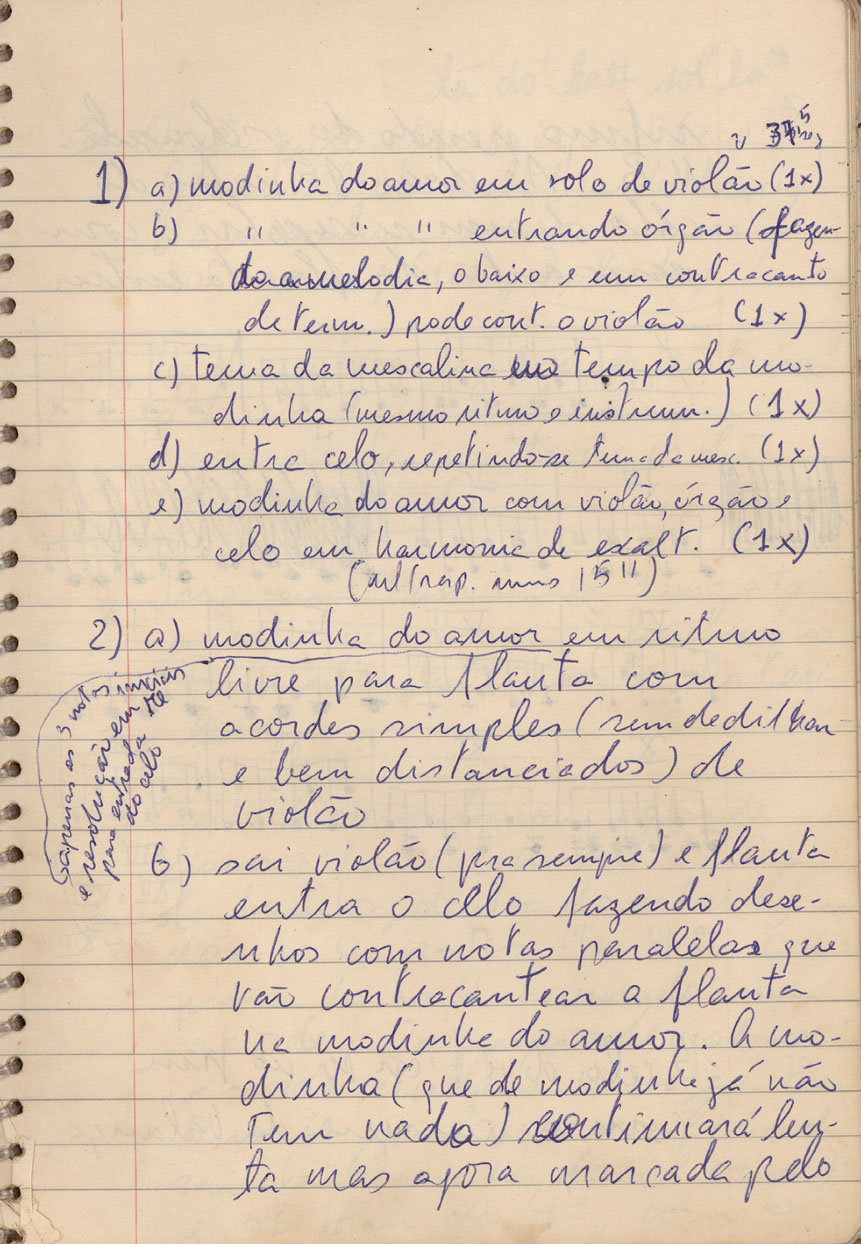 1) a) modinha do amor em solo de violão (1x)
b) " " " entrando órgão (fazen-
do a melodia, o baixo e um contracanto
determ.) pode cont. o violão (1x)
c) tema da mescalina no tempo da mo-
dinha (mesmo ritmo e instrum.) (1x)
d) entra celo, repetindo-se tema da mesc. (1x)
e) modinha do amor com violão, órgão e
celo em harmonia de exalt. (1x)
15")
2) a) modinha do amor em ritmo
livre para flauta com
acordes simples (sem dedilhar
e bem distanciados) de
violão
apenas as 3 notas iniciais
e resolução em ré
para entrada
do celo
b) sai violão (pra sempre) e flauta
entra o celo fazendo dese-
nhos com notas paralelas que
vão contracantear a flauta
na modinha do amor. A mo-
dinha (que de modinha já não
tem nada) continuará len-
ta mas agora marcada pelo